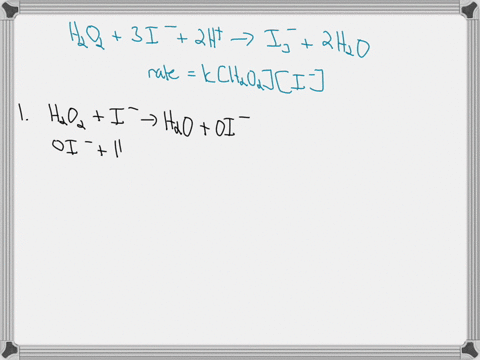 H₂O₂ + 3I⁻ + 2H⁺ → I₃⁻ + 2H₂O
rate = k[H₂O₂][I⁻]
1. H₂O₂ + I⁻ → H₂O + OI⁻
OI⁻ +